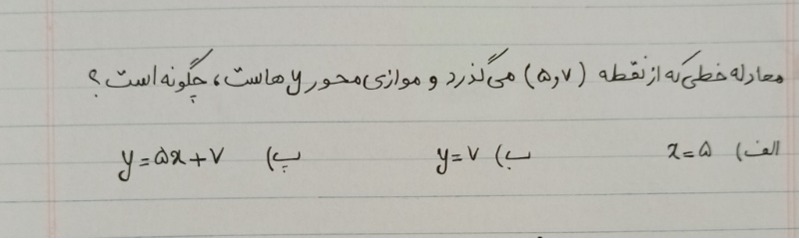 معادله خطی که از نقطه (۵,۷) می گذرد و موازی محور y هاست، چگونه است؟
الف) x=۵ ب) y=۷ پ) y=۵x+۷